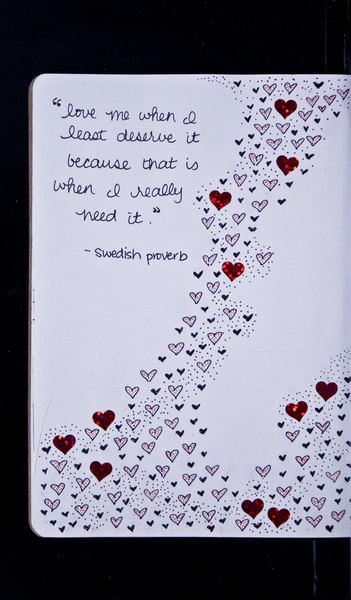 "love me when I
least deserve it
because that is
when I really
need it."
- Swedish proverb